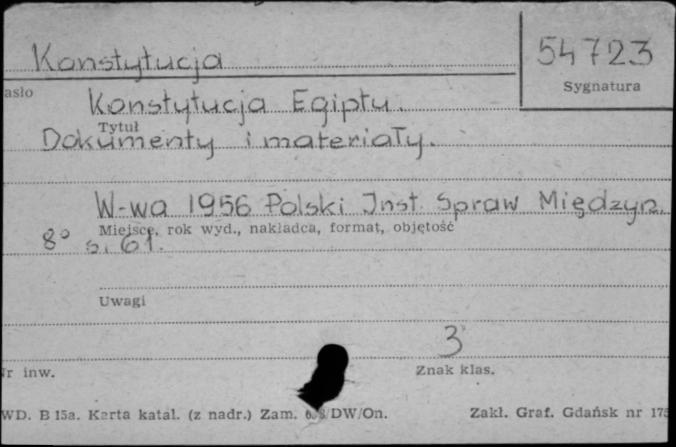 Konstytucja
54723
asło
Sygnatura
Konstytucja Egiptu.
Tytuł
Dokumenty i materiały.
W-wa 1956 Polski Inst. Spraw Międzyn.
Miejsce, rok wyd., nakładca, format, objętość
8° s. 61.
Uwagi
3
r inw.
Znak klas.
WD. B 15a. Karta katal. (z nadr.) Zam. /DW/On.
Zakł. Graf. Gdańsk nr 175